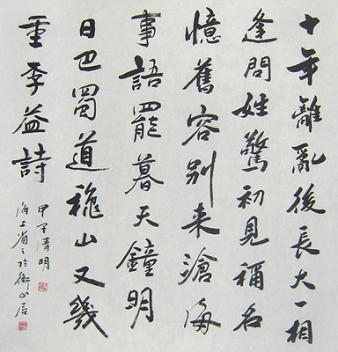 十年離亂後長大一相
逢問姓驚初見稱名
憶舊容别来滄海
事語罷暮天鐘明
日巴蜀道穐山又幾
重李益詩
甲午清明
海上省於衡山居